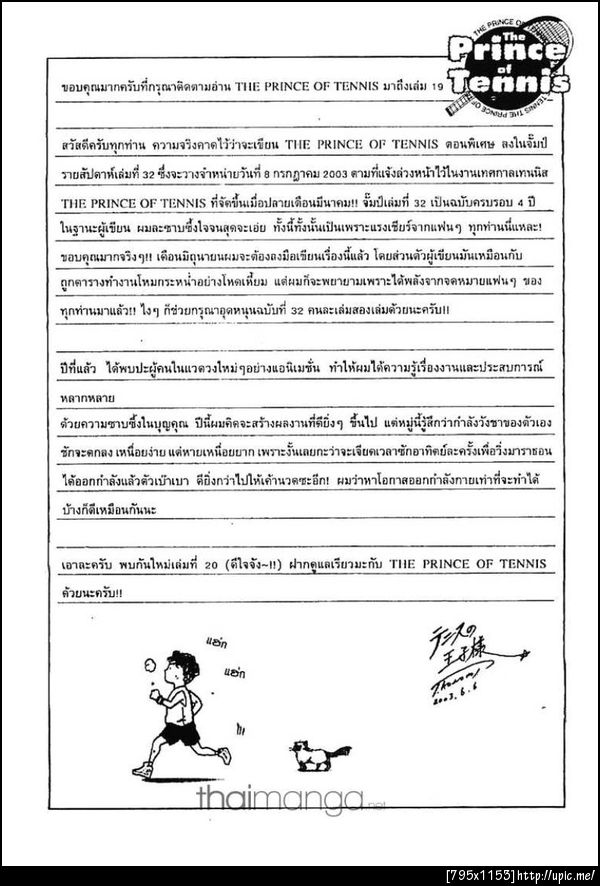 THE PRINCE OF TENNIS
The
Prince
of
Tennis
ขอบคุณมากครับที่กรุณาติดตามอ่าน THE PRINCE OF TENNIS มาถึงเล่ม 19
สวัสดีครับทุกท่าน ความจริงคาดไว้ว่าจะเขียน THE PRINCE OF TENNIS ตอนพิเศษ ลงในจั๊มป์
รายสัปดาห์เล่มที่ 32 ซึ่งจะวางจำหน่ายวันที่ 8 กรกฎาคม 2003 ตามที่แจ้งล่วงหน้าไว้ในงานเทศกาลเทนนิส
THE PRINCE OF TENNIS ที่จัดขึ้นเมื่อปลายเดือนมีนาคม!! จั๊มป์เล่มที่ 32 เป็นฉบับครบรอบ 4 ปี
ในฐานะผู้เขียน ผมละซาบซึ้งใจจนสุดจะเอ่ย ทั้งนี้ทั้งนั้นเป็นเพราะแรงเชียร์จากแฟนๆ ทุกท่านนี่แหละ!
ขอบคุณมากจริงๆ!! เดือนมิถุนายนผมจะต้องลงมือเขียนเรื่องนี้แล้ว โดยส่วนตัวผู้เขียนมันเหมือนกับ
ถูกตารางทำงานโหมกระหน่ำอย่างโหดเหี้ยม แต่ผมก็จะพยายามเพราะได้พลังจากจดหมายแฟนๆ ของ
ทุกท่านมาแล้ว!! ไงๆ ก็ช่วยกรุณาอุดหนุนฉบับที่ 32 คนละเล่มสองเล่มด้วยนะครับ!!
ปีที่แล้ว ได้พบปะผู้คนในแวดวงใหม่ๆอย่างแอนิเมชั่น ทำให้ผมได้ความรู้เรื่องงานและประสบการณ์
หลากหลาย
ด้วยความซาบซึ้งในบุญคุณ ปีนี้ผมคิดจะสร้างผลงานที่ดียิ่งๆ ขึ้นไป แต่หมู่นี้รู้สึกว่ากำลังวังชาของตัวเอง
ชักจะตกลง เหนื่อยง่าย แต่หายเหนื่อยยาก เพราะงั้นเลยกะว่าจะเจียดเวลาซักอาทิตย์ละครั้งเพื่อวิ่งมาราธอน
ได้ออกกำลังแล้วตัวเบ๊าเบา ดียิ่งกว่าไปให้เค้านวดซะอีก! ผมว่าหาโอกาสออกกำลังกายเท่าที่จะทำได้
บ้างก็ดีเหมือนกันนะ
เอาละครับ พบกันใหม่เล่มที่ 20 (ดีใจจัง~!!) ฝากดูแลเรียวมะกับ THE PRINCE OF TENNIS
ด้วยนะครับ!!
แฮ่ก
แฮ่ก
テニスの
王子様
2003.6.6
thaimanga.net
[795x1153]http://upic.me/